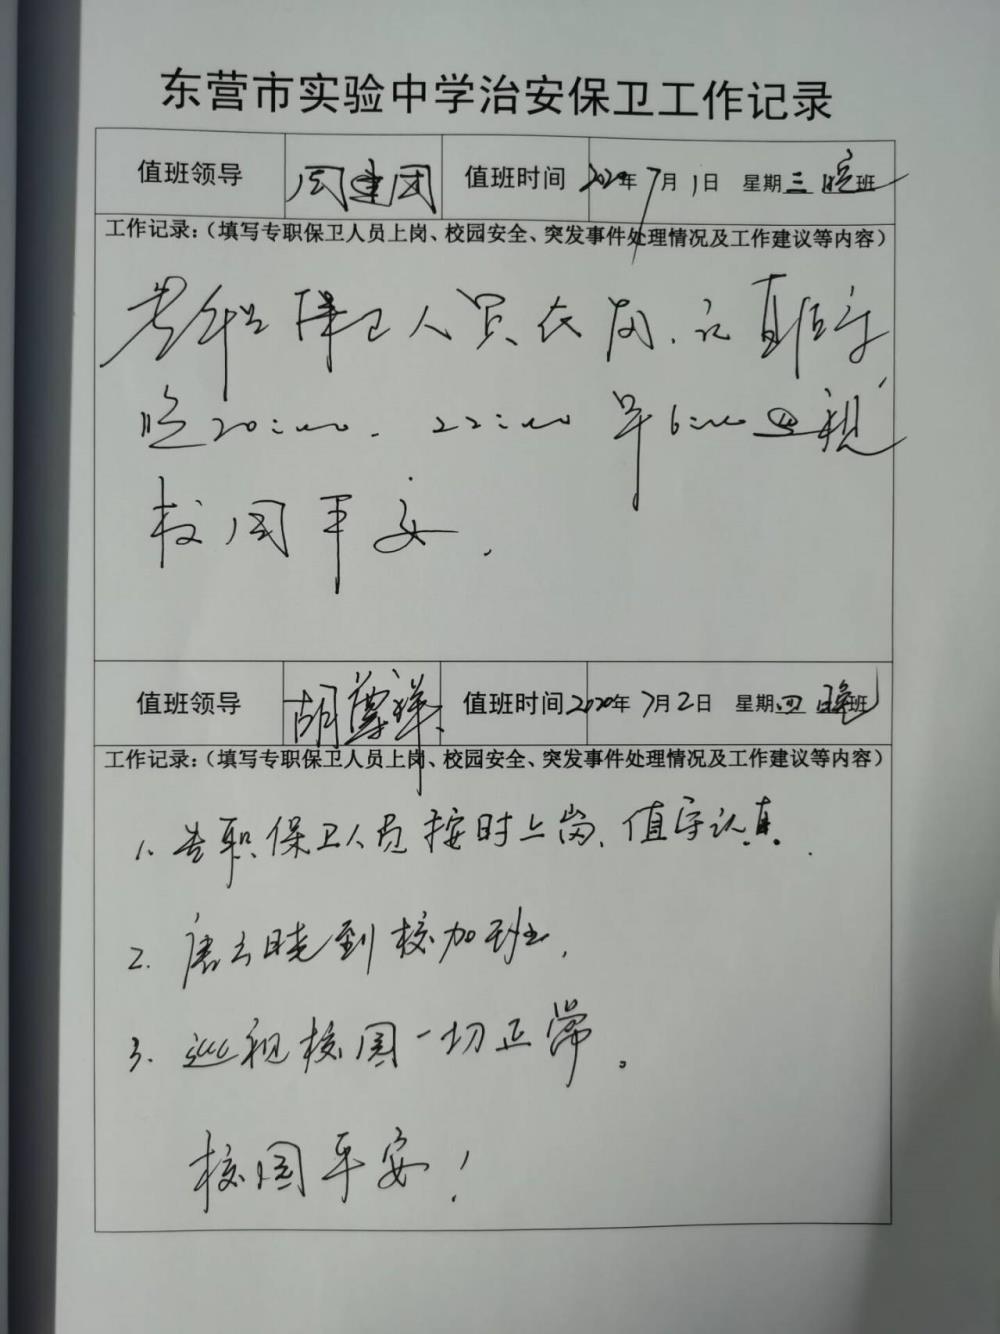 东营市实验中学治安保卫工作记录
值班领导 周建团 值班时间 2020年7月1日 星期三 晚班
工作记录：（填写专职保卫人员上岗、校园安全、突发事件处理情况及工作建议等内容）
专职保卫人员在岗、认真值守
晚20:00、22:00 早6:00巡视
校园平安．
值班领导 胡尊祥 值班时间 2020年7月2日 星期四 晚班
工作记录：（填写专职保卫人员上岗、校园安全、突发事件处理情况及工作建议等内容）
1. 专职保卫人员按时上岗、值守认真．
2. 唐云晓到校加班．
3. 巡视校园一切正常。
校园平安！